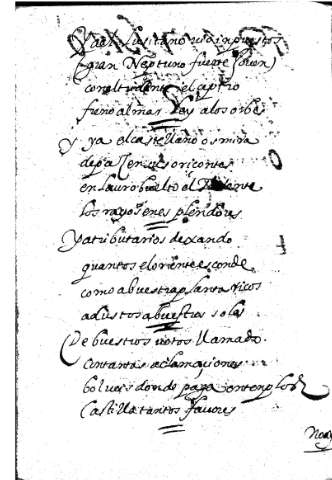 Ya el Lusitano
gran Neptuno fuerte Joven
con el tridente el
freno al mar Ley a los orbes
Y ya el castellano os mira
depa en sus oriçontes
en Lauro buelto el
los rayos en esplendores
Y a tributarios dexando
quantos el oriente esconde
como a buestra planta ricos
adustos a buestros soles
De buestros votos llamado
con tantas aclamaçiones
bolueis dando paga en templos
Castilla tantos fauores